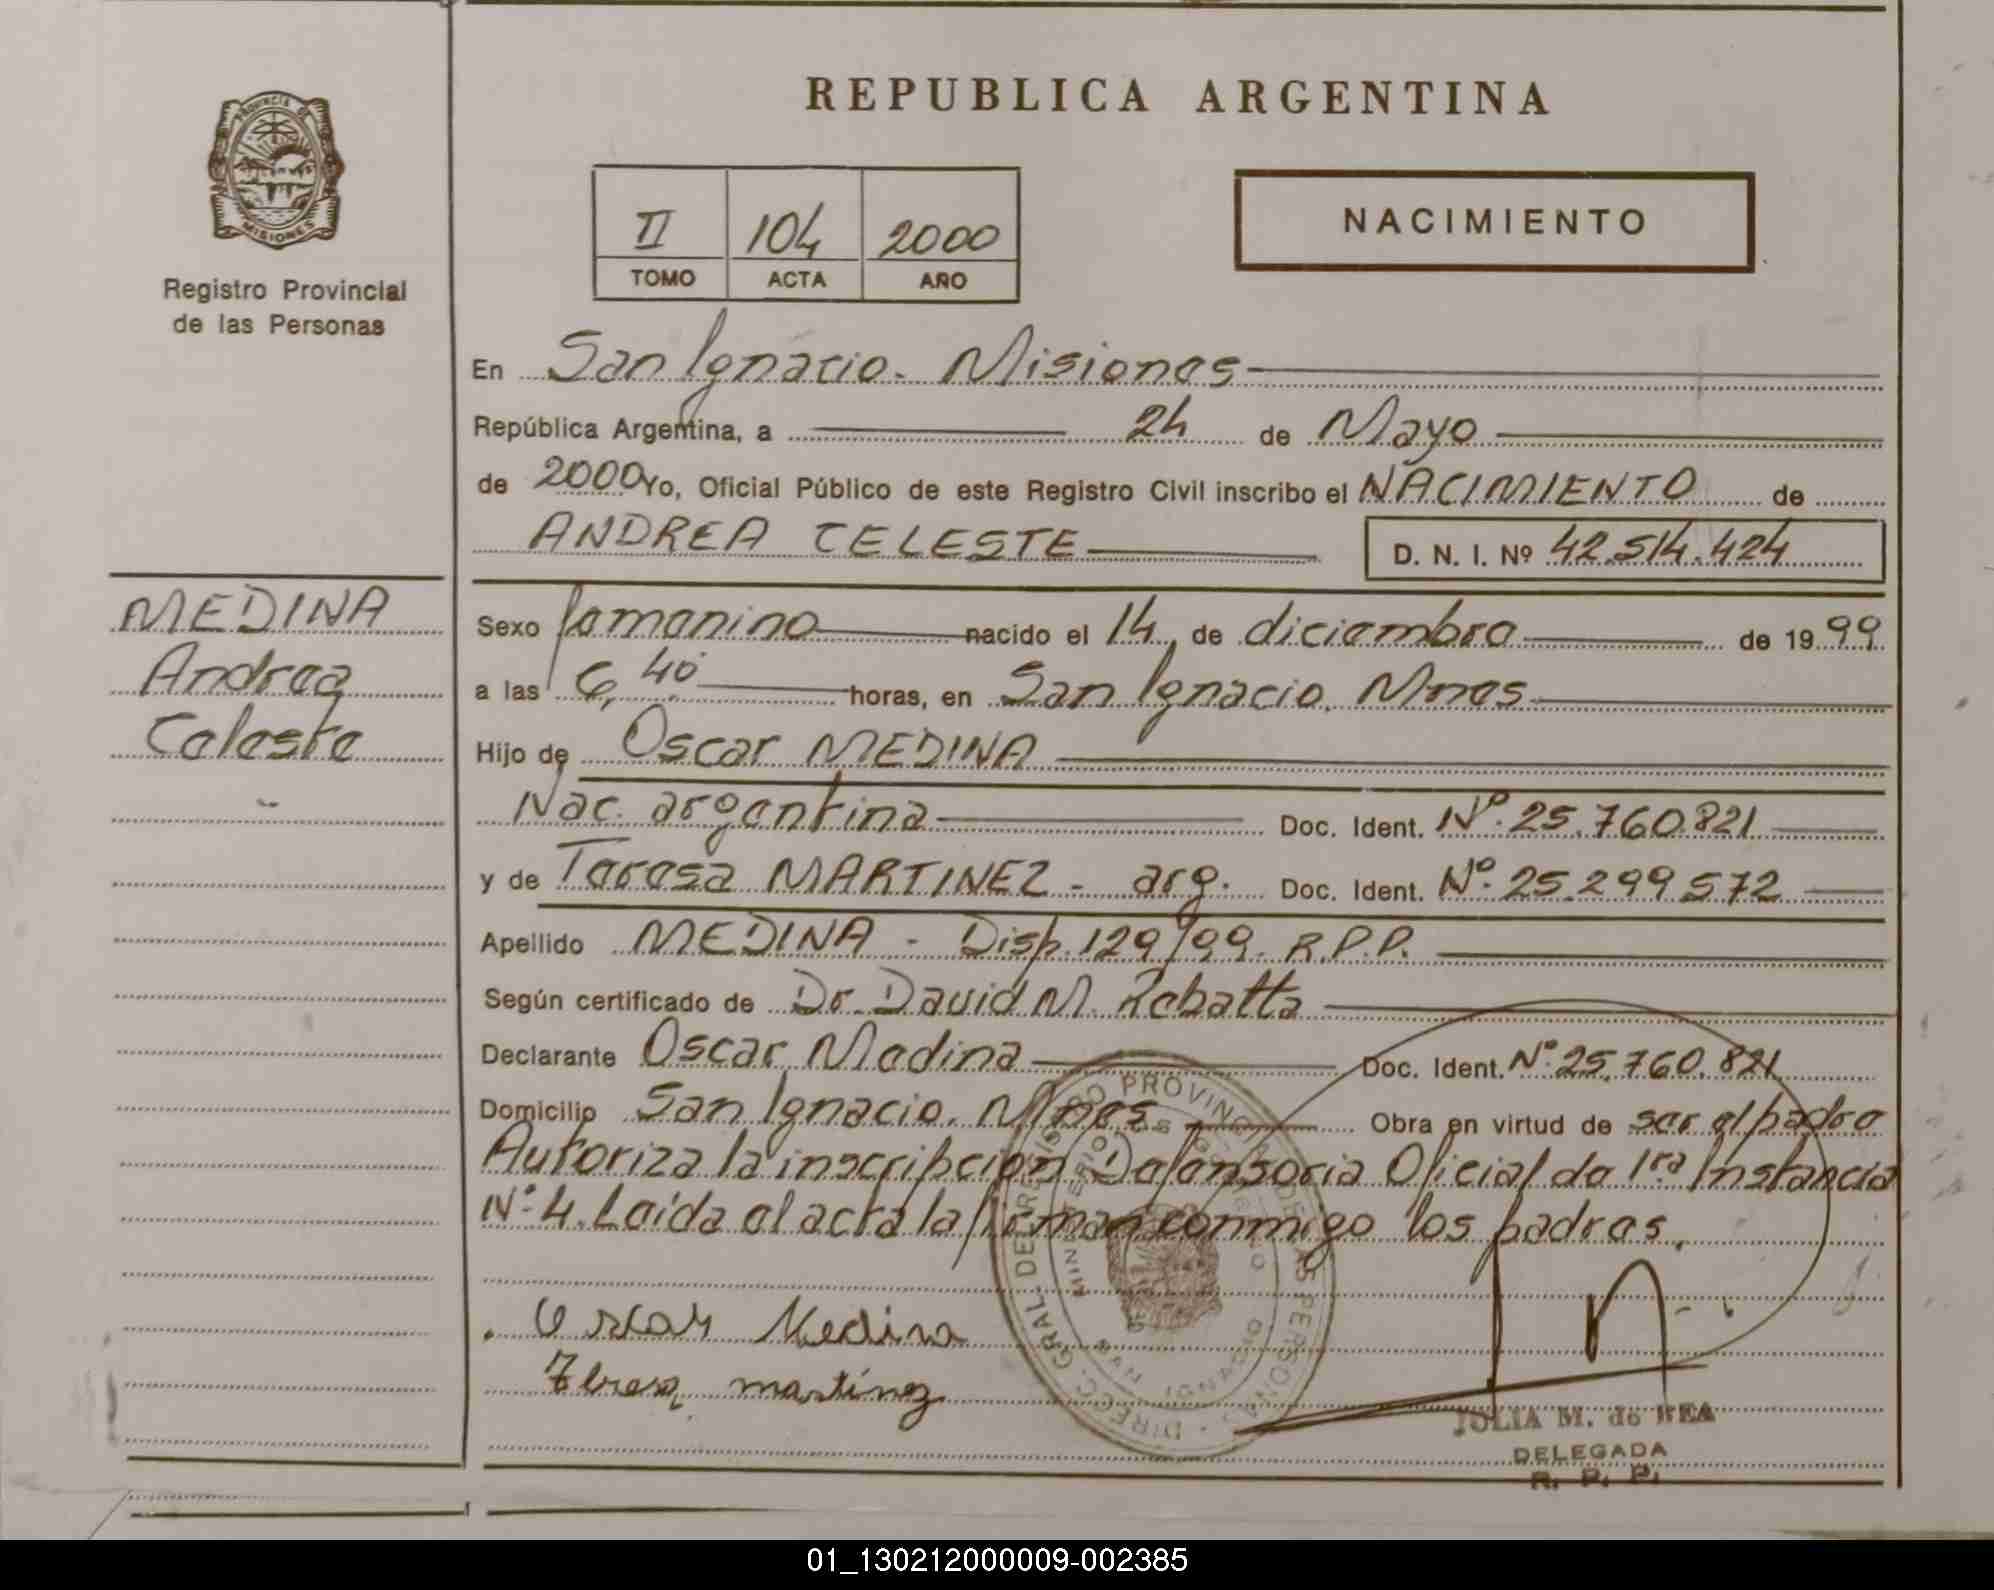 REPUBLICA ARGENTINA
PROVINCIA DE
MISIONES
Registro Provincial
de las Personas
II 104 2000
TOMO ACTA AÑO
NACIMIENTO
En San Ignacio. Misiones
República Argentina, a 24 de Mayo
de 2000 Yo, Oficial Público de este Registro Civil inscribo el NACIMIENTO de
ANDREA CELESTE D. N. I. Nº 42.514.424
MEDINA
Andrea
Celeste
Sexo femenino nacido el 14 de diciembre de 1999
a las 6,40 horas, en San Ignacio. Mnes
Hijo de Oscar MEDINA
Nac. argentina Doc. Ident. Nº 25.760.821
y de Teresa MARTINEZ - arg. Doc. Ident. Nº 25.299.572
Apellido MEDINA - Disp. 129/99. R.P.P.
Según certificado de Dr. David M. Rebatta
Declarante Oscar Medina Doc. Ident. Nº 25.760.821
Domicilio San Ignacio. Mnes Obra en virtud de ser el padre
Autoriza la inscripción Defensoria Oficial de 1ra Instancia
Nº 4. Leída el acta la firman conmigo los padres.
Oscar Medina
Teresa martínez
JULIA M. de REA
DELEGADA
R. P. P.
01_130212000009-002385